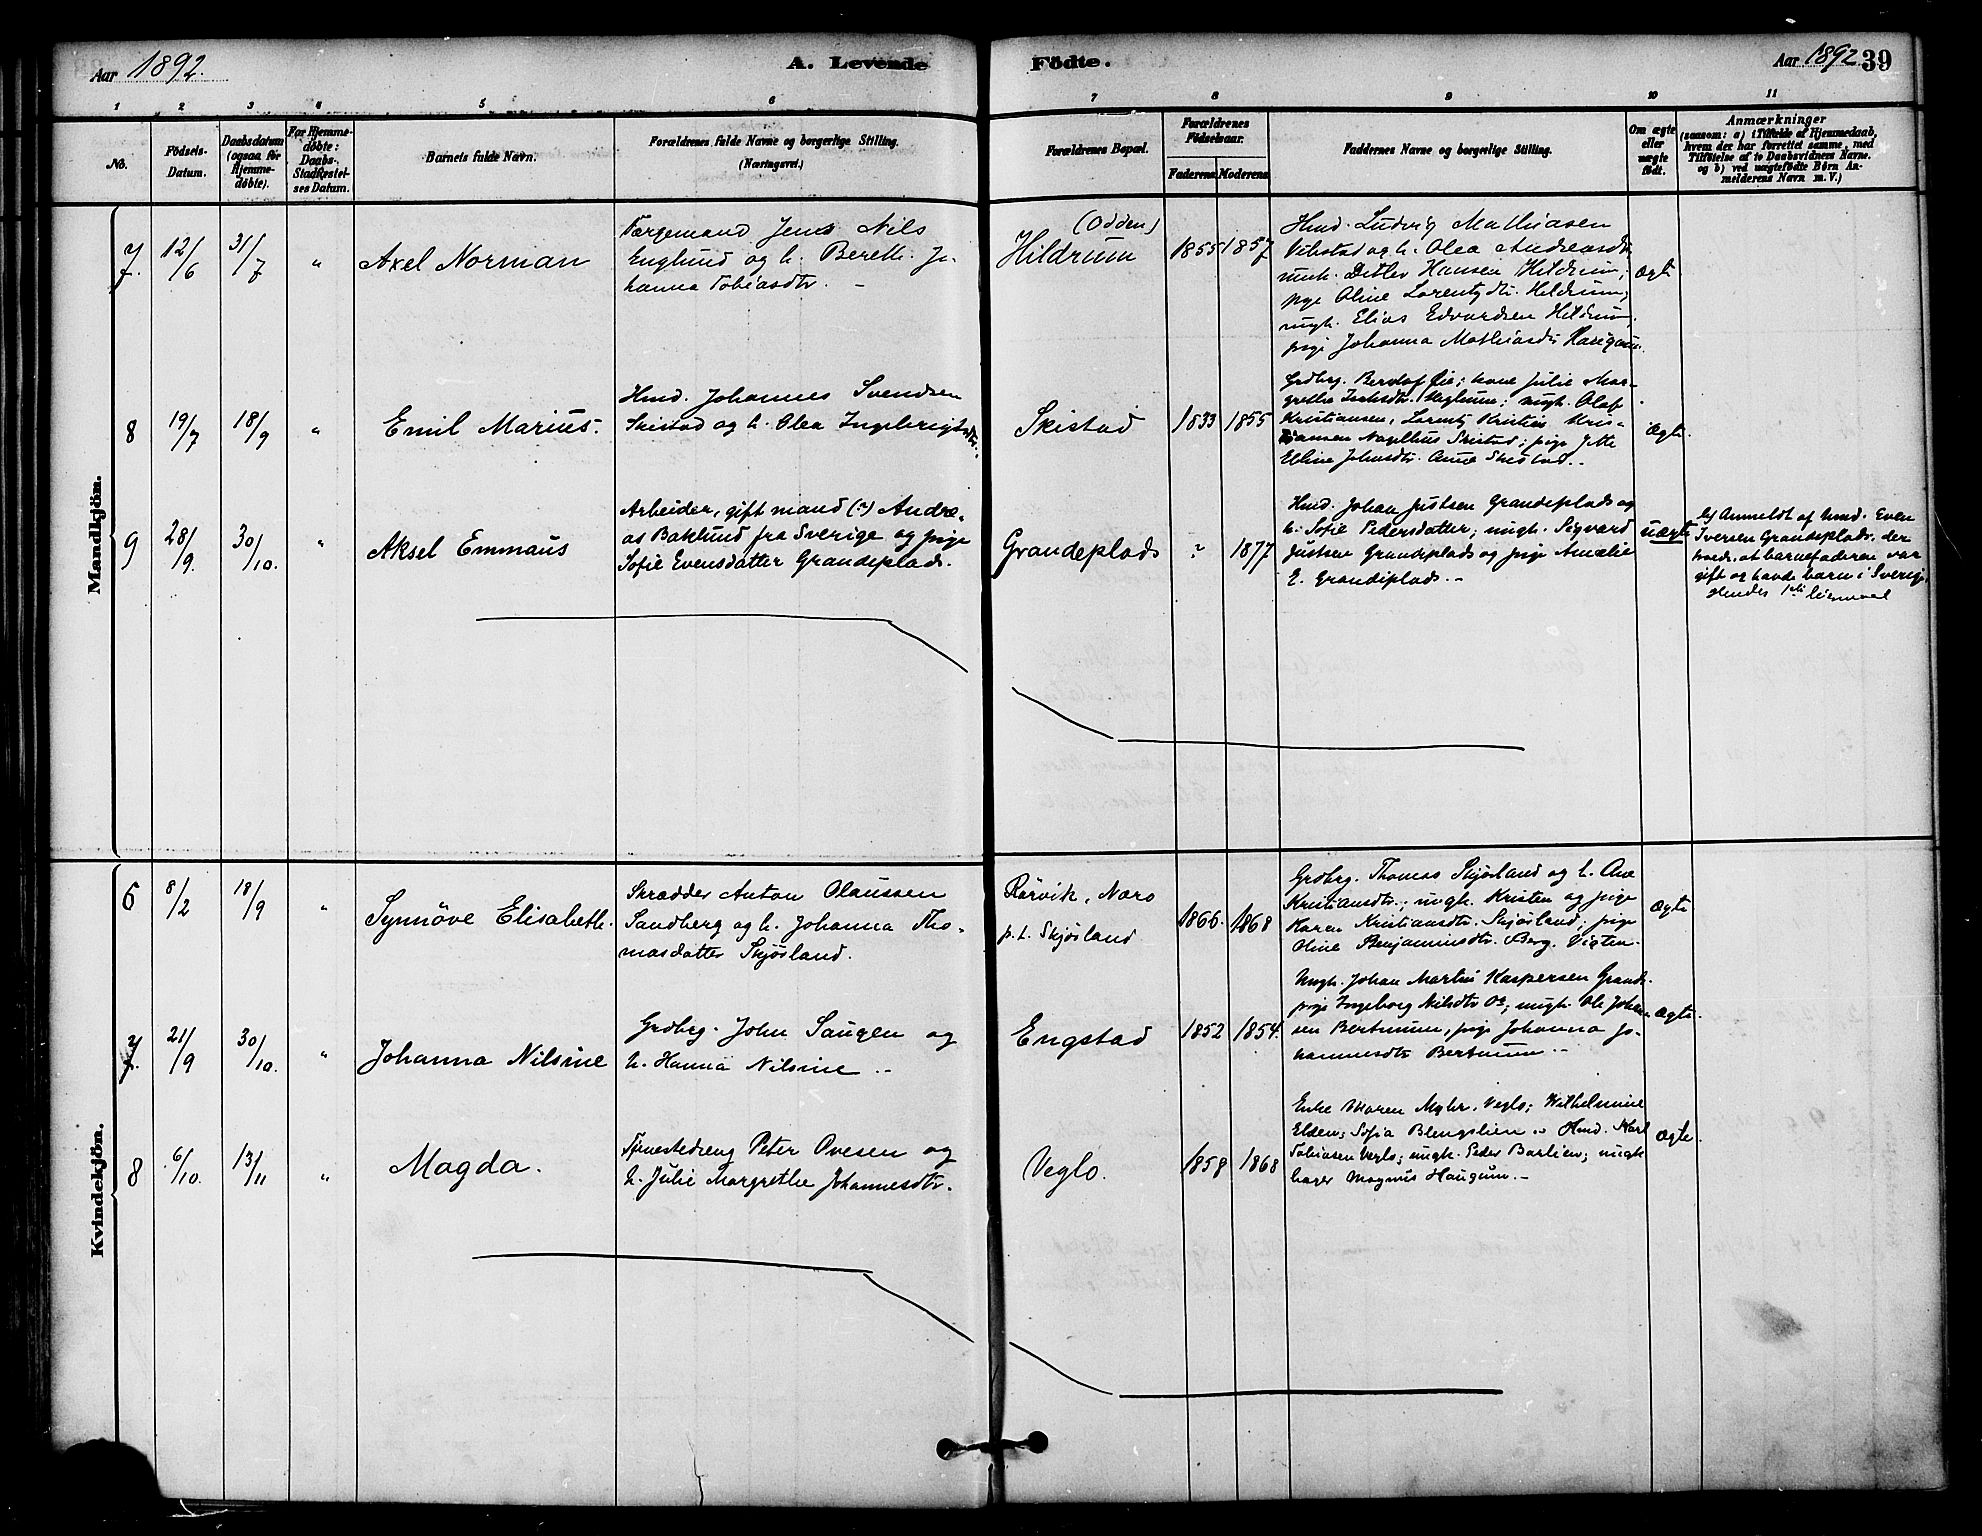 Aar 1892.
A. Levende
Födte.
Aar 1892
39
1 2 3 4 5 6 7 8 9 10 11
No.
Födsels-
Datum.
Daabsdatum
(ogsaa för
Hjemme-
döbte).
For Hjemme-
döbte:
Daabs-
Stadfæstel-
ses Datum.
Barnets fulde Navn.
Forældrenes fulde Navne og borgerlige Stilling.
(Næringsvei.)
Forældrenes Bopæl.
Forældrenes
Födselsaar.
Faderens Moderens
Faddernes Navne og borgerlige Stilling.
Om ægte
eller
uægte
födt.
Anmærkninger
(saasom: a) i Tilfælde af Hjemmedaab,
hvem der har forrettet samme, med
Tilföielse af to Daabsvidners Navne.
og b) ved uægtefödte Börn An-
melderens Navn m. V.)
Mandkjön.
7.
12/6
31/7
"
Axel Norman
Færgemand Jens Nils
Englund og h. Bereth. Jo-
hanna Tobiasdtr. -
(Odden)
Hildrum
1855
1857
Hmd. Ludvig Mathiasen
Vikstad og h. Olea Andreasdtr.
ungk. Ditlev Hansen Hildrum;
pige Oline Lorentzdtr. Hildrum;
ungk. Elias Edvardsen Hildrum,
pige Johanna Mathiasdtr
ægte
8
19/7
18/9
"
Emil Marius.
Hmd. Johannes Svendsen
Skistad og h. Olea Ingebrigtsdtr.
Skistad
1833
1855
Grdbrg. Øie; kone Julie Mar-
grethe Veglum; ungk. Olaf
Kristiansen, Lorentz Kristius Kris-
tiansen Skistad; pige Jette
Elline Johnsdtr. Anna Skistad.
ægte.
9
28/9.
30/10.
"
Aksel Emmaus
Arbeider, gift mand (?) Andre-
as Baklund fra Sverige og pige
Sofie Evensdatter Grandeplads.
Grandeplads
?
1877
Hmd. Johan Justsen Grandeplads og
h. Sofie Pedersdatter; ungk. Sigvard
Justsen Grandeplads og pige Amalie
E. Grandeplads. -
uægte
b) Anmeldt af hmd. Even
Iversen Grandeplads, der
at barnefaderen var
gift og havde børn i Sverig.
Hendes 1ste leiermaal
Kvindekjön.
6
8/2
18/9
"
Synnöve Elisabeth.
Skrædder Anton Olaussen
Sandberg og h. Johanna Tho-
masdatter Skjösland.
Rörvik, Nærö
p.t. Skjösland
1866.
1868
Grdbrg. Thomas Skjösland og h. Ane
Kristiansdtr.; ungk. Kristen og pige
Karen Kristiansdtr. Skjösland; pige
Oline Benjaminsdtr. Berg. Vigten.
ægte
7.
21/9
30/10.
"
Johanna Nilsine
Grdbrg. John Saugen og
h. Hanna Nilsine ..
Engstad
1852
1854.
Ungk. Johan Martin Kaspersen Grande.
pige Ingeborg Nilsdtr. ungk. Ole Johan-
sen Bertnum, pige Johanna Jo-
hannesdtr Bertnum. -
ægte
8
6/10.
13/11
"
Magda.
Tjenestedreng Peter Ovesen og
h. Julie Margrethe Johannesdtr.
Veglo.
1858
1868
Enke Maren Myhr. Veglo; Wilhelmine
Elden; Sofia Blengslien .. Hmd. Karl
Tobiasen Veglo; ungk. Peder Barlien; ungk.
bager Magnus Haugum. -
ægte.